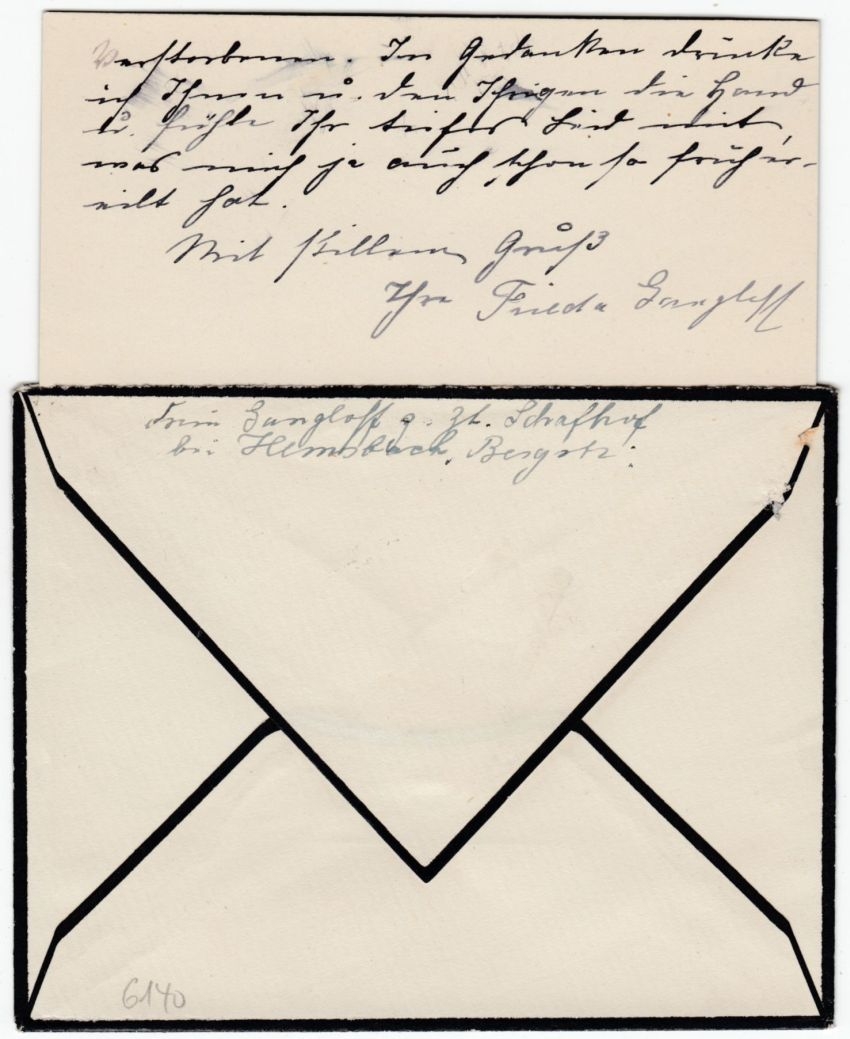 Verstorbenen. In Gedanken drücke
ich Ihnen u. den Ihrigen die Hand
u. fühle Ihr tiefes Leid mit,
was mich ja auch schon so früh er-
eilt hat.
Mit stillem Gruß
Ihre Frieda Gangloff
Frau Gangloff z. Zt. Schafhof
bei Hemsbach, Bergstr.
6140